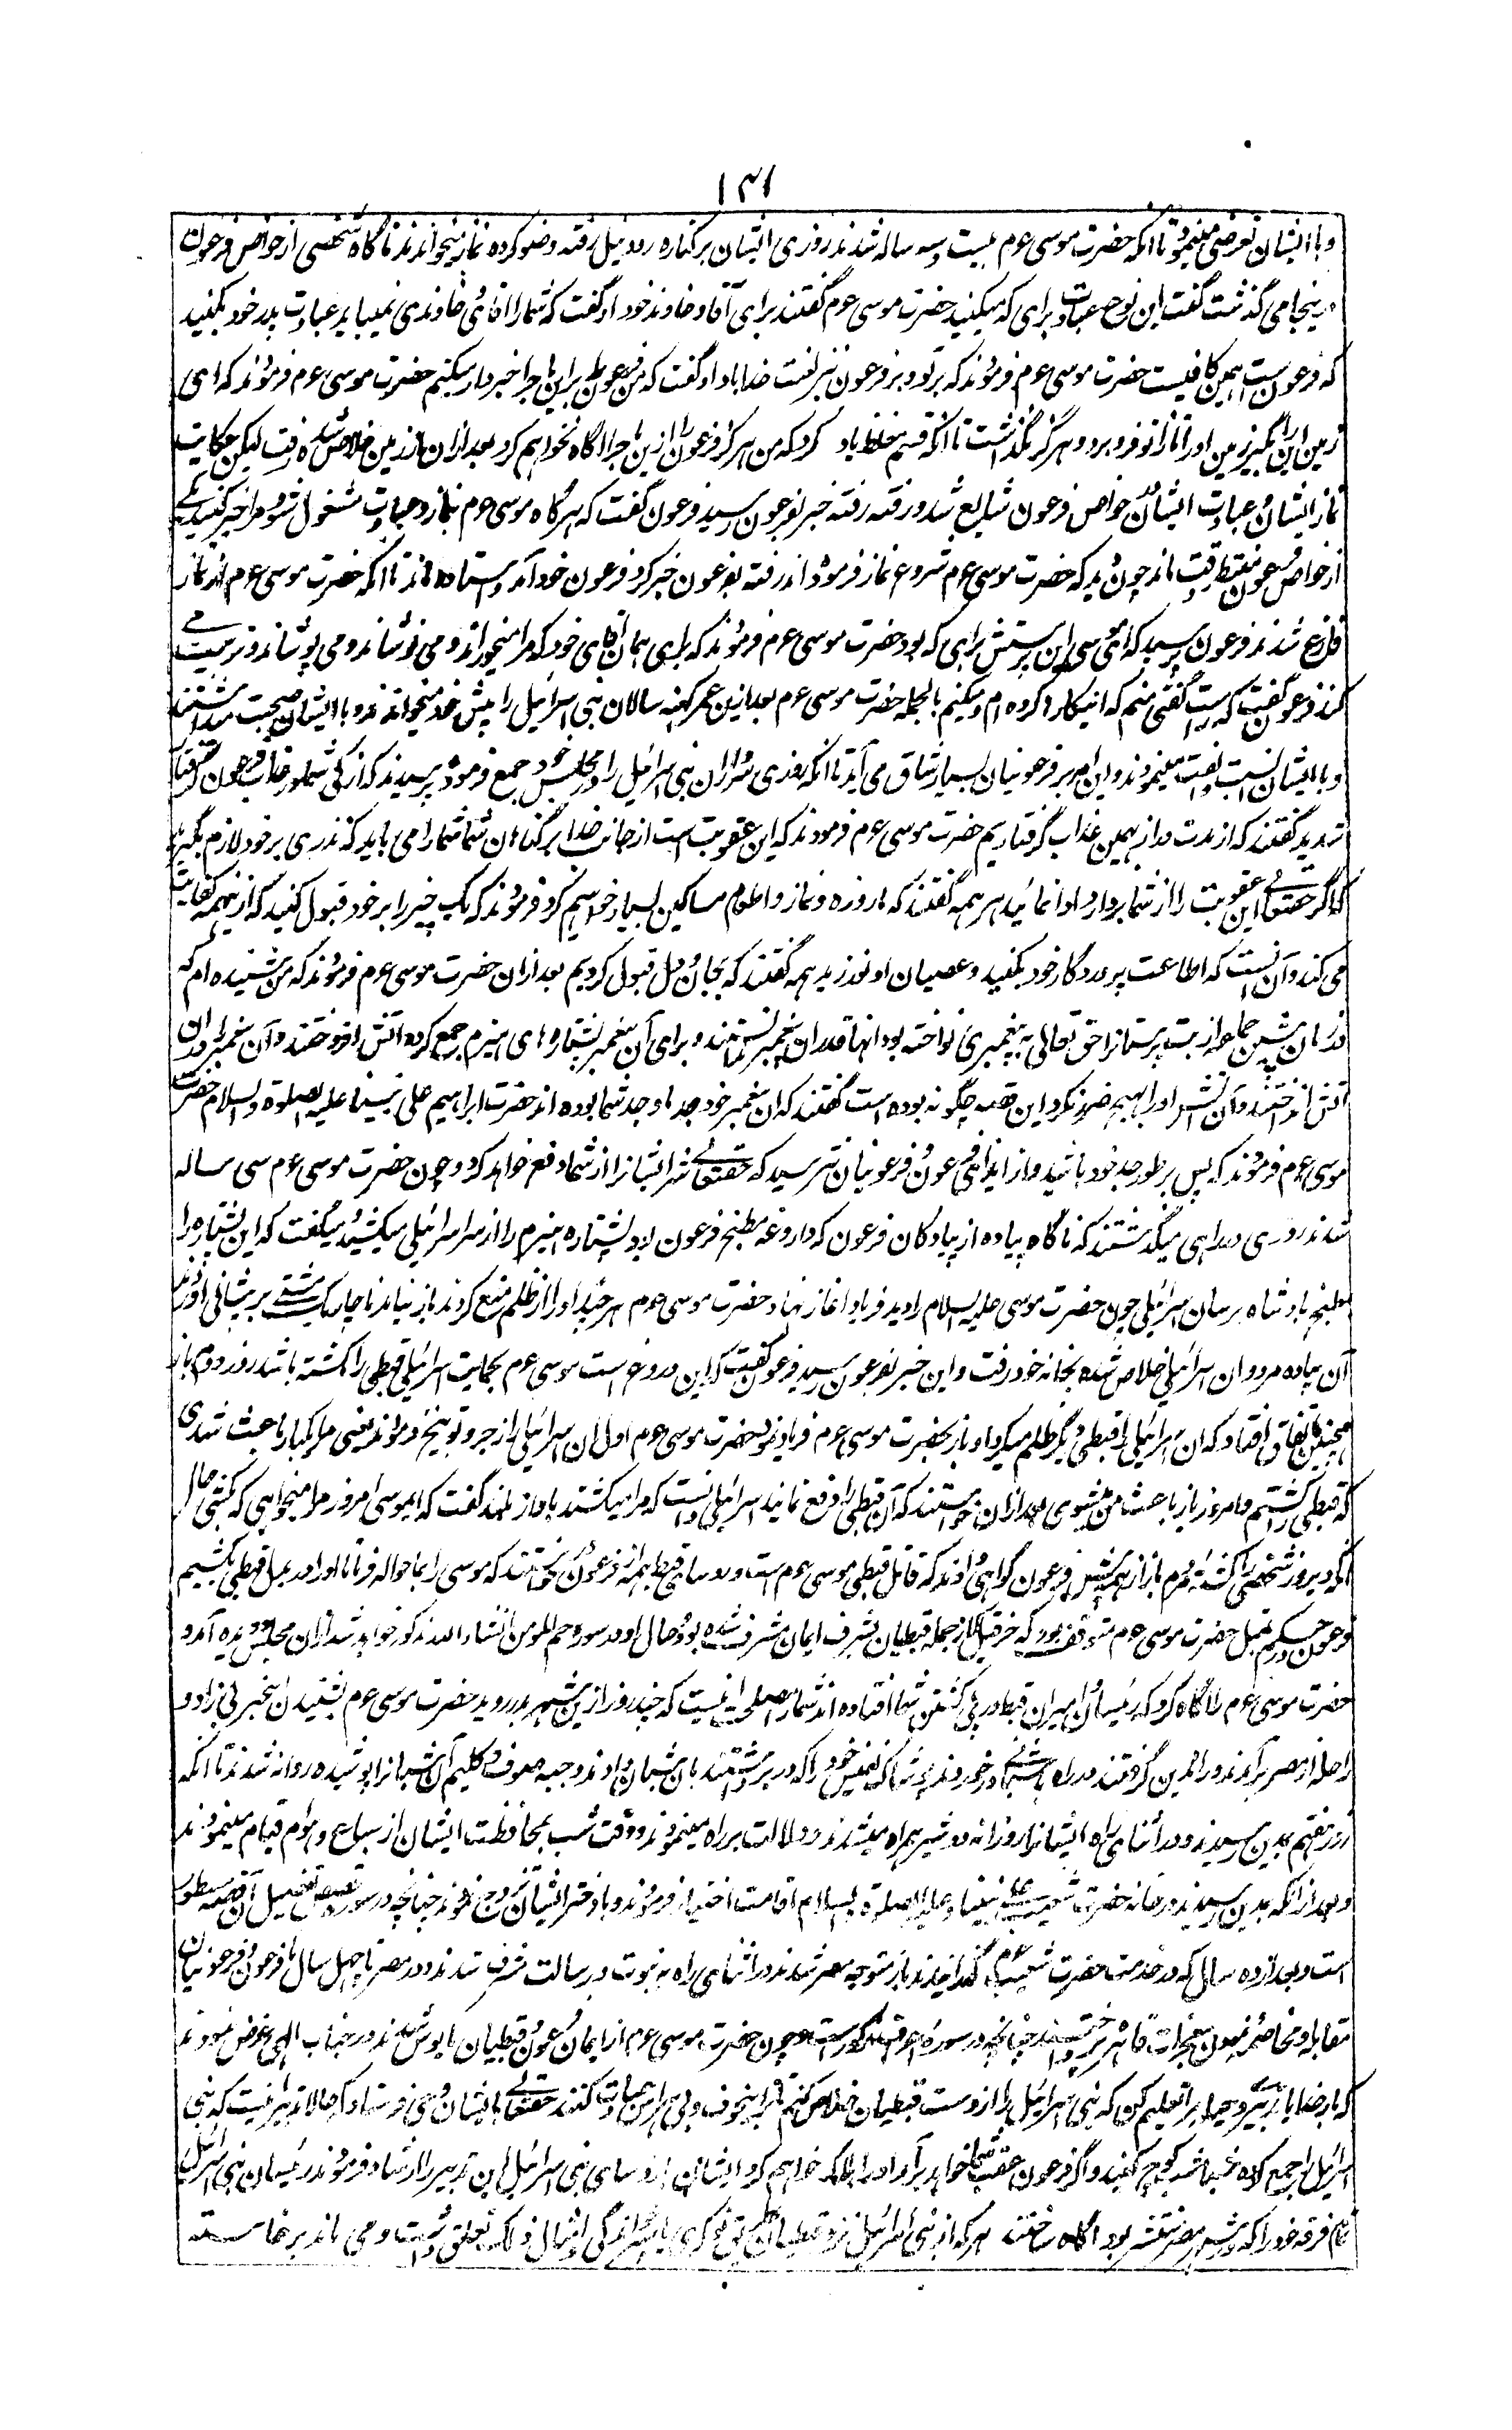 ۱۳۱
و با ایشان تعرضی نمینمود تا آنکه حضرت موسی عوم بیست و سه ساله شدند روزی ایشان بر کناره رود نیل رفته وضو کرده نماز میخواندند ناگاه شخصی از خواص فرعون
درینجا می گذشت گفت این نوع عبادت برای که میکنید حضرت موسی عوم گفتند برای آقا و خاوند خود او گفت که شما را آقائی خاوندی نمیباید عبادت پدر خود بکنید
که فرعون است همین کافیست حضرت موسی عوم فرمودند که بر تو و بر فرعون نیز لعنت خدا باد او گفت که من فرعون را برین ماجرا خبردار میکنم حضرت موسی عوم فرمودند که ای
زمین این را بگیر زمین او را تا زانو فرو برد و هرگز نگذاشت تا آنکه قسم غلاظ یاد کرد که من هرگز فرعون را ازین ماجرا آگاه نخواهم کرد بعد ازان از زمین خلاص شده رفت لیکن حکایت
نماز ایشان و عبادت ایشان در خواص فرعون شایع شد و رفته رفته خبر بفرعون رسید فرعون گفت که هرگاه موسی عوم بنماز و عبادت مشغول شود مرا خبر کنید یکی
از خواص فرعون منتظر وقت ماند چون دید که حضرت موسی عوم شروع نماز فرموده اند رفته بفرعون خبر کرد فرعون خود آمد و استاده ماند تا آنکه حضرت موسی عوم از نماز
فارغ شدند فرعون پرسید که ای موسی این پرستش برای که بود حضرت موسی عوم فرمودند که برای همان آقای خود که مرا میخوراند و می نوشاند و می پوشاند و تربیت می
کند فرعون گفت که راست گفتی منم که اینکار را کرده ام و میکنم بالجمله حضرت موسی عوم بعد ازین عمر کهنه سالان بنی اسرائیل را پیش خود میخواندند و با ایشان صحبت میداشتند
و با ایشان نسبت و الفت مینمودند و این امر بر فرعونیان بسیار شاق می آید تا آنکه روزی سرداران بنی اسرائیل را در مجلس خود جمع فرموده پرسیدند که از کی شما در عذاب فرعون گرفتار
شدید گفتند که از مدت دراز بهمین عذاب گرفتاریم حضرت موسی عوم فرمودند که این عقوبت است از جانب خدا بر گناهان شما شما را می باید که نذری بر خود لازم بگیرید
که اگر حقتعالی این عقوبت را از شما بردارد ادا نمائید همه گفتند که ما روزه و نماز و اطعام مساکین بسیار خواهیم کرد فرمودند که یک چیز را بر خود قبول کنید که از همه کفایت
می کند و آن اینست که اطاعت پروردگار خود بکنید و عصیان او نورزید همه گفتند که بجان و دل قبول کردیم بعد ازان حضرت موسی عوم فرمودند که من شنیده ام که
در زمان پیشین جماعه از بت پرستان را حق تعالی به پیغمبری نواخته بود آنها قدر آن پیغمبر نشناختند و برای آن پیغمبر پشتاره های هیزم جمع کرده آتش افروختند و آن پیغمبر را در آن
آتش انداختند و آن آتش او را هیچ ضرر نکرد این قصه چگونه بوده است گفتند که آن پیغمبر خود جد ما و جد شما بوده اند حضرت ابراهیم علی نبینا و علیه الصلوة والسلام حضرت
موسی عوم فرمودند که پس بر طور جد خود باشید و از ایذای فرعون و فرعونیان نترسید که حقتعالی شر ایشان را از شما دفع خواهد کرد و چون حضرت موسی عوم سی ساله
شدند روزی در راهی میگذشتند که ناگاه پیاده از پیادگان فرعون که داروغه مطبخ فرعون بود پشتاره هیزم را از سر اسرائیلی میکشید و میگفت که این پشتاره را
بمطبخ بادشاه برسان اسرائیلی چون حضرت موسی علیه السلام را دید فریاد آغاز نهاد حضرت موسی عوم هر چند او را از ظلم منع کردند باز نیامد ناچار یک مشتی بر پیشانی او زدند
آن پیاده مرد و آن اسرائیلی خلاص شده بخانه خود رفت و این خبر بفرعون رسید فرعون گفت که این دروغ است موسی عوم بحمایت اسرائیلی قبطی را کشته باشد روز دوم باز
همچنین اتفاق افتاد که آن اسرائیلی را قبطی دیگر ظلم میکرد او باز بحضرت موسی عوم فریاد نمود حضرت موسی عوم اول آن اسرائیلی را زجر و توبیخ فرمودند یعنی مرا یکبار باعث شدی
که قبطی را کشتم و امروز باز باعث من میشوی بعد ازان خواستند که آن قبطی را دفع نمایند اسرائیلی دانست که مرا میکشند بآواز بلند گفت که ای موسی امروز مرا میخواهی که بکشی حال
آنکه دیروز شخصی را کشته مردم باز آن همه پیش فرعون گواهی دادند که قاتل قبطی موسی عوم است و رؤسای قبط همه از فرعون خواستند که موسی را بما حواله فرما تا او را در بدل قبطی بکشیم
فرعون در حکم بقتل حضرت موسی عوم متوقف بود که خرقیل که از جمله قبطیان بشرف ایمان مشرف شده بود و حال او در سوره حم المومن انشاء الله مذکور خواهد شد ازان مجلس دویده آمد و
حضرت موسی عوم را آگاه کرد که رئیسان و امیران قبط در پی کشتن شما افتاده اند شما را صلاح اینست که چند روز ازین شهر بدر روید حضرت موسی عوم بشنیدن این خبر بی زاد و
راحله از مصر برآمدند و راه مدین گرفتند در راه باشبانی در خوردند پوشاک نفیس خود را که در بر داشتند بآن شبان دادند و جبه صوف و کلیم آن شبان را پوشیده روانه شدند تا آنکه
روز هفتم بمدین رسیدند و در اثنای راه ایشان را روزانه دو شیر همراه میشدند و دلالت بر راه مینمودند و وقت شب بمحافظت ایشان از سباع و هوام قیام مینمودند
و بعد از آنکه بمدین رسیدند در خانه حضرت شعیب علی نبینا و علیه الصلوة والسلام اقامت اختیار فرمودند و با دختر ایشان تزوج نمودند چنانچه در سوره قصص تفصیل آن قصه مسطور
است و بعد از ده سال که در خدمت حضرت شعیب عوم گذرانیدند باز متوجه مصر شدند در اثنای راه به نبوت و رسالت مشرف شدند و در مصر تا چهل سال با فرعون و فرعونیان
مقابله و مخاصمه نمودن بمعجزات قاهره پرداختند چنانچه در سوره اعراف مذکور است و چون حضرت موسی عوم از ایمان فرعون و قبطیان مایوس شدند در جناب الهی عرض نمودند
که بار خدایا تدبیری و حیله مرا تعلیم کن که بنی اسرائیل را از دست قبطیان خلاص کنم تا بیخوف و بی هراس عبادت کنند حقتعالی بایشان وحی فرستاد که حالا تدبیر اینست که بنی
اسرائیل را جمع کرده شباشب کوچ کنید و اگر فرعون عقب شما خواهد برآمد او را هلاک خواهم کرد ایشان رؤسای بنی اسرائیل را این تدبیر را ارشاد فرمودند رئیسان بنی اسرائیل
تمام فرقه خود را که در شهر مصر منتشر بود آگاه ساختند هر که از بنی اسرائیل نزد قبطیان بنوکری یا شاگردی و امثال ذلک تعلق داشت و می ماند برخاسته